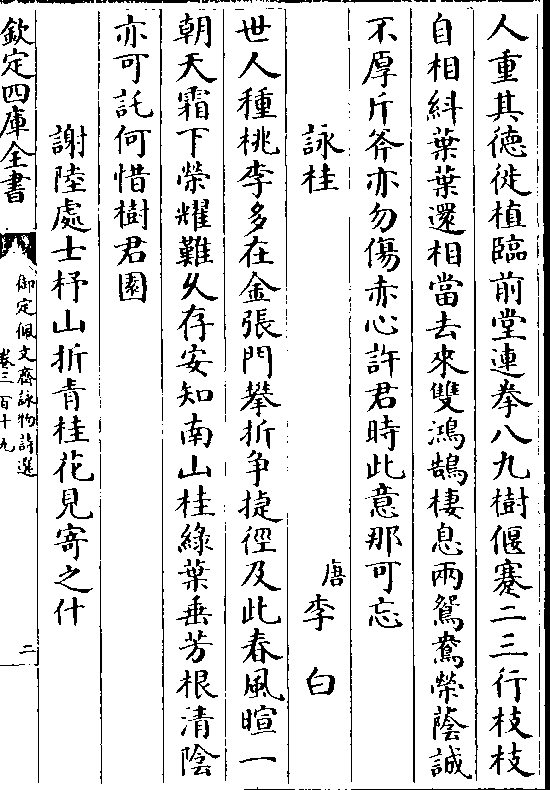 人重其德徙植臨前堂連拳八九樹偃蹇二三行枝枝
自相糾葉葉還相當去來雙鴻鵠棲息兩鴛鴦榮蔭誠
不厚斤斧亦勿傷赤心許君時此意那可忘
詠桂 唐李白
世人種桃李多在金張門攀折争捷徑及此春風暄一
朝天霜下榮耀難久存安知南山桂綠葉垂芳根清陰
亦可託何惜樹君園
謝陸處士杼山折青桂花見寄之什
欽定四庫全書
御定佩文齋詠物詩選
卷三百十九
二